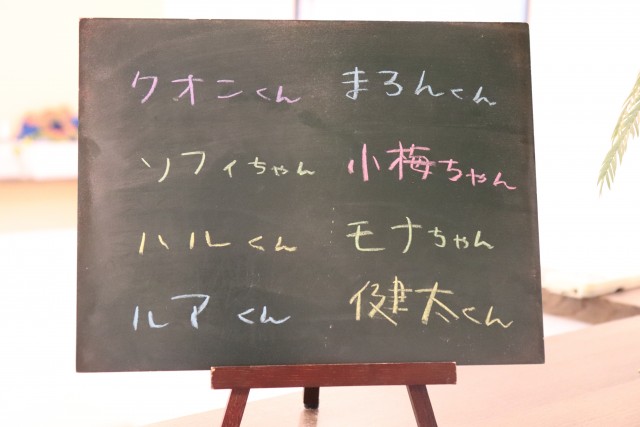 クオンくん まろんくん
ソフィちゃん 小梅ちゃん
ハルくん モナちゃん
ルアくん 健太くん